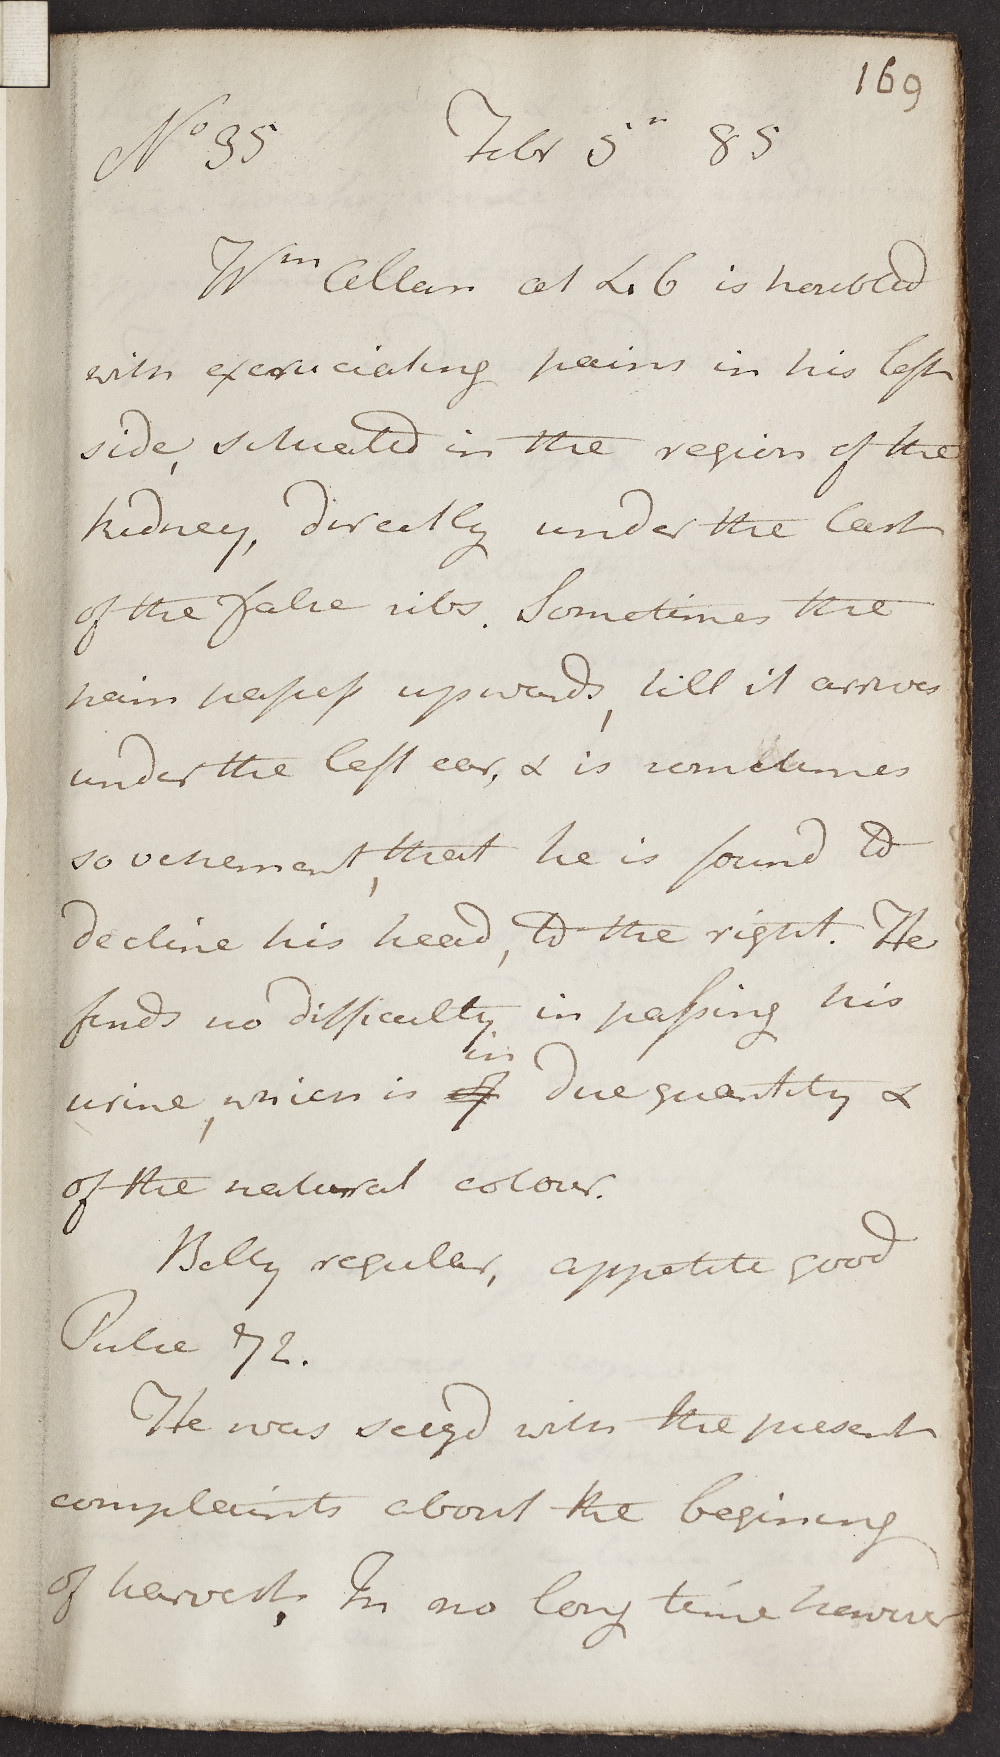 169
No 35 Febr 5th 85
Wm Allan æt 26 is troubled
with excruciating pains in his left
side, situated in the region of the
kidney, directly under the last
of the false ribs. Sometimes the
pain passes upwards, till it arrives
under the left ear, & is sometimes
so vehement, that he is found to
decline his head, to the right. He
finds no difficulty in passing his
in
urine, which is of due quantity &
of the natural colour.
Belly regular, appetite good
Pulse 72.
He was seizd with the present
complaints about the begining
of harvest, In no long time however